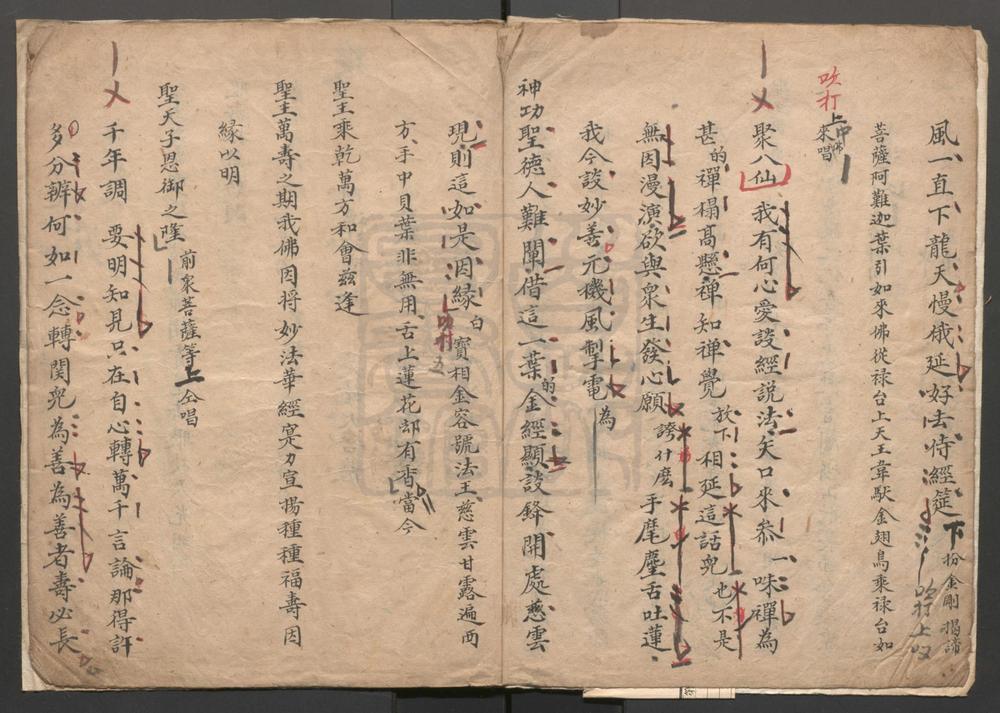 風一直下龍天慢俄延好去侍經筵下扮金剛揭諦
菩薩阿難迦葉引如來佛從祿台上天王韋馱金翅鳥乘祿台如
吹打上
來唱
聚八仙我有何心愛談經說法矢口來叅一味禪為
甚的禪榻高懸禪知禪覺放下相延這話兒也不是
無因漫演欲與衆生發心願誇什麽手麾麈舌吐蓮
我今談妙善元機風掣電為
神功聖德人難闡借這一葉的金經顯設鋒開處慈雲
現則這如是因緣吹打白寶相金容號法王慈雲甘露遍西
方手中貝葉非無用舌上蓮花却有香當今
聖主乘乾萬方和會玆逢
聖主萬壽之期我佛因將妙法華經寔力宣揚種種福壽因
緣以明
聖天子恩御之隆前衆菩薩等上仝唱
千年調要明知見只在自心轉萬千言論那得許
多分辨何如一念轉関兒為善為善者壽必長